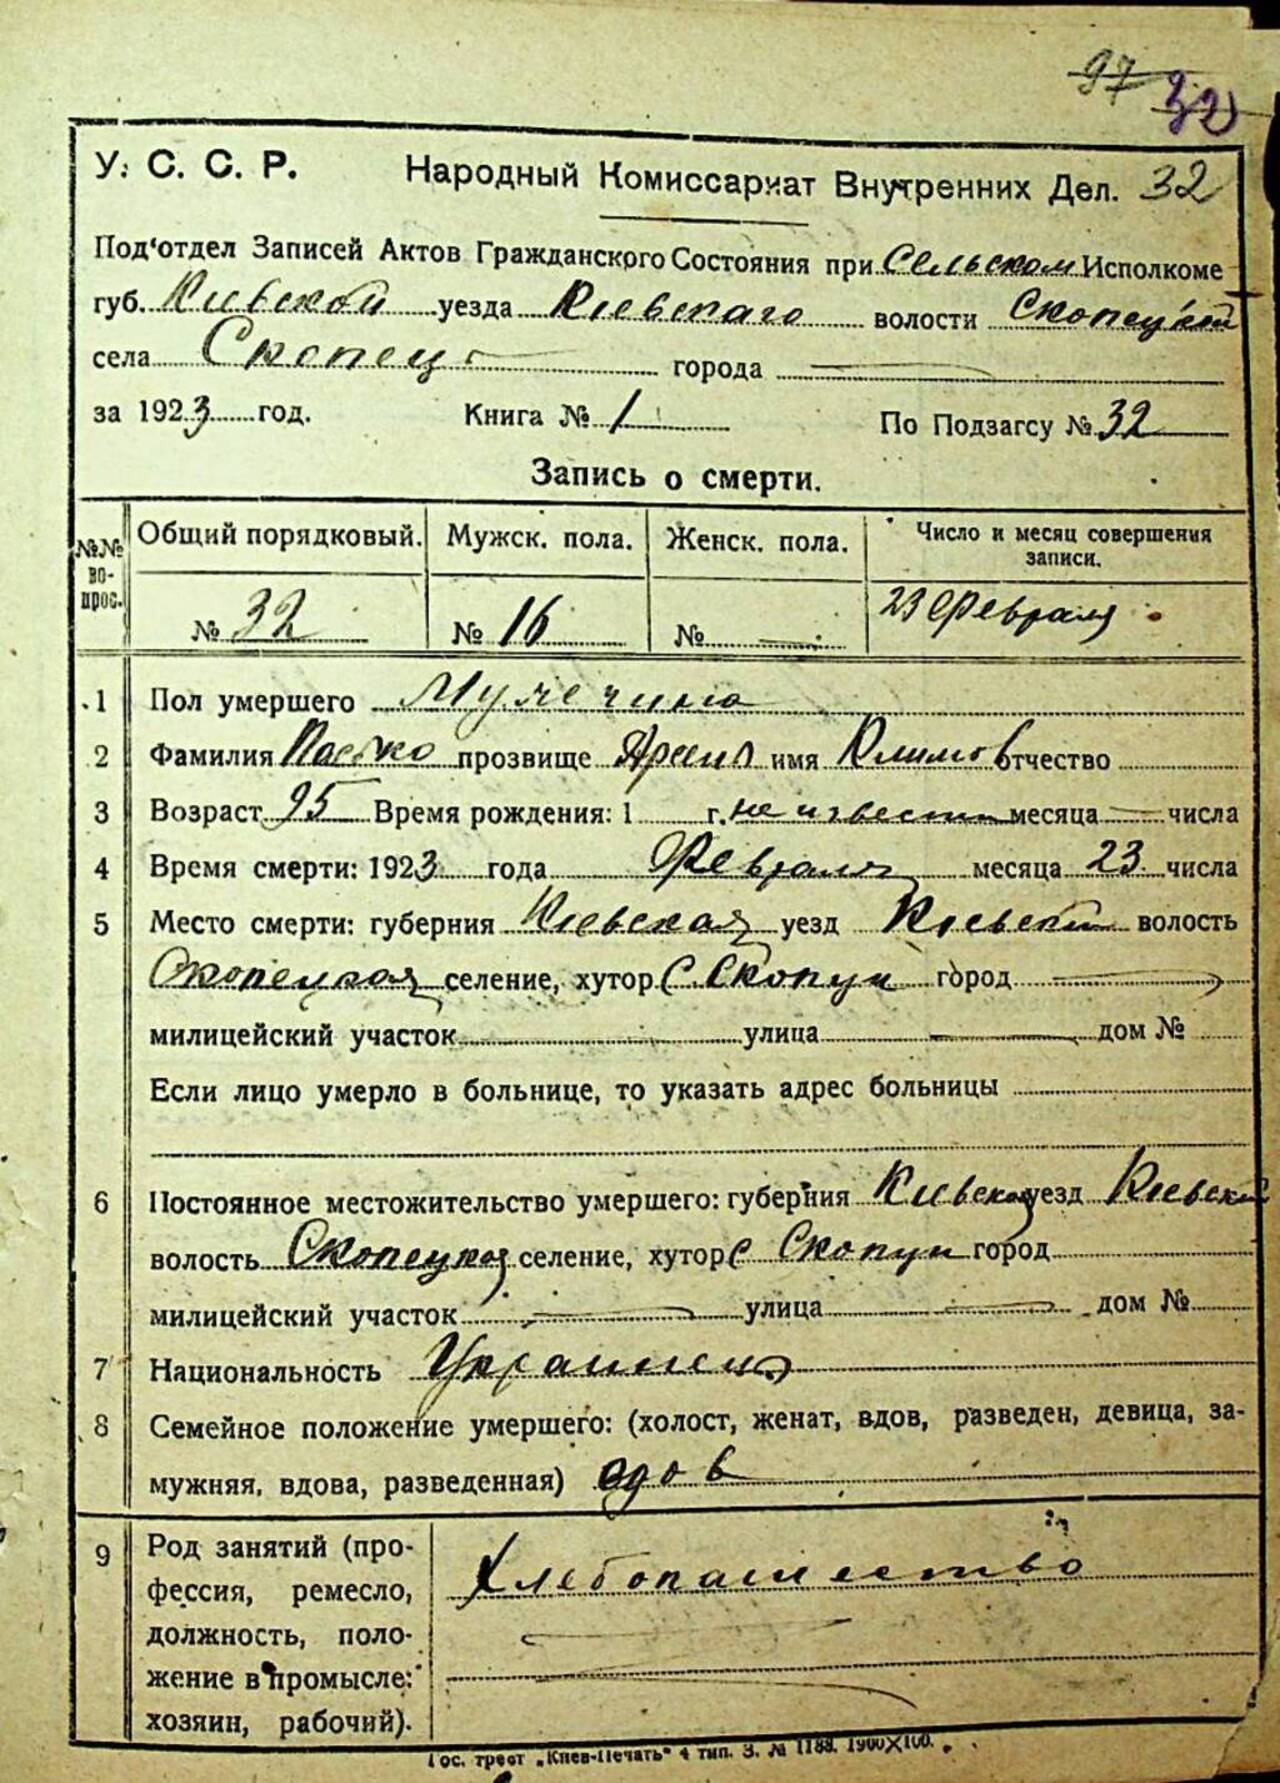 97 32
У. С. С. Р. Народный Комиссариат Внутренних Дел. 32
Под'отдел Записей Актов Гражданского Состояния при Сельском Исполкоме
губ. Киевской уезда Киевскаго волости Скопецкой
села Скопец города
за 1923 год. Книга № 1 По Подзагсу № 32
Запись о смерти.
№№ во- прос. Общий порядковый. Мужск. пола. Женск. пола. Число и месяц совершения записи.
№ 32 № 16 № 23 Февраля
1 Пол умершего Мужчина
2 Фамилия прозвище Арсений имя Климов отчество
3 Возраст 95 Время рождения: 1 г. не известн месяца — числа
4 Время смерти: 1923 года Февраля месяца 23 числа
5 Место смерти: губерния Киевская уезд Киевский волость
Скопецкая селение, хутор С. Скопци город
милицейский участок улица дом №
Если лицо умерло в больнице, то указать адрес больницы
6 Постоянное местожительство умершего: губерния Киевская уезд Киевский
волость Скопецкая селение, хутор С Скопци город
милицейский участок улица дом №
7 Национальность Украинец
8 Семейное положение умершего: (холост, женат, вдов, разведен, девица, за-
мужняя, вдова, разведенная) вдов
9 Род занятий (про- Хлебопашество
фессия, ремесло,
должность, поло-
жение в промысле:
хозяин, рабочий).
Гос. трест „Киев-Печать“ 4 тип. З. № 1188. 1900Х100.